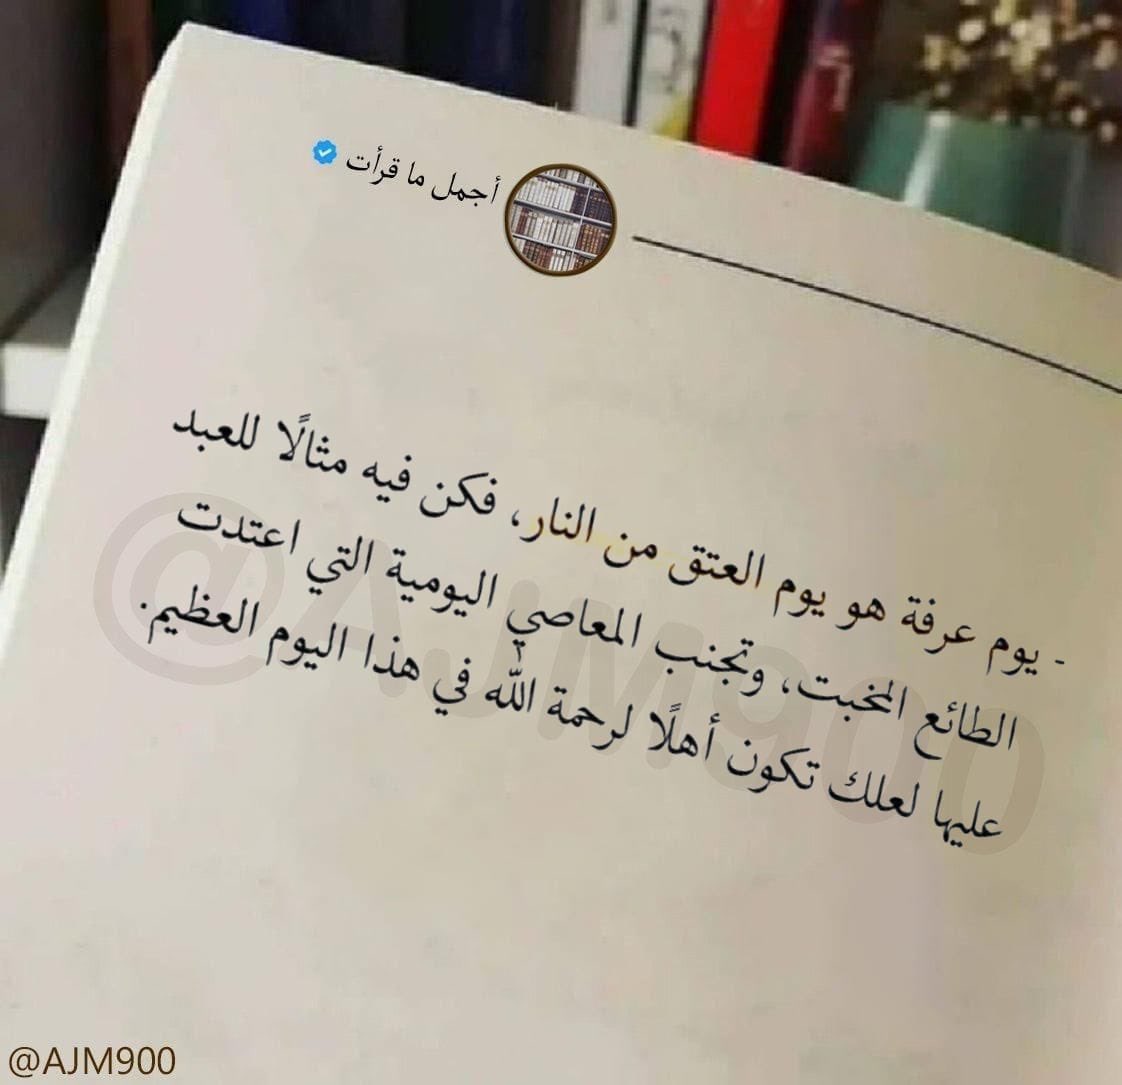 أجمل ما قرأت
- يوم عرفة هو يوم العتق من النار، فكن فيه مثالًا للعبد
الطائع المخبت، وتجنب المعاصي اليومية التي اعتدت
عليها لعلك تكون أهلًا لرحمة الله في هذا اليوم العظيم.
@AJM900
@AJM900